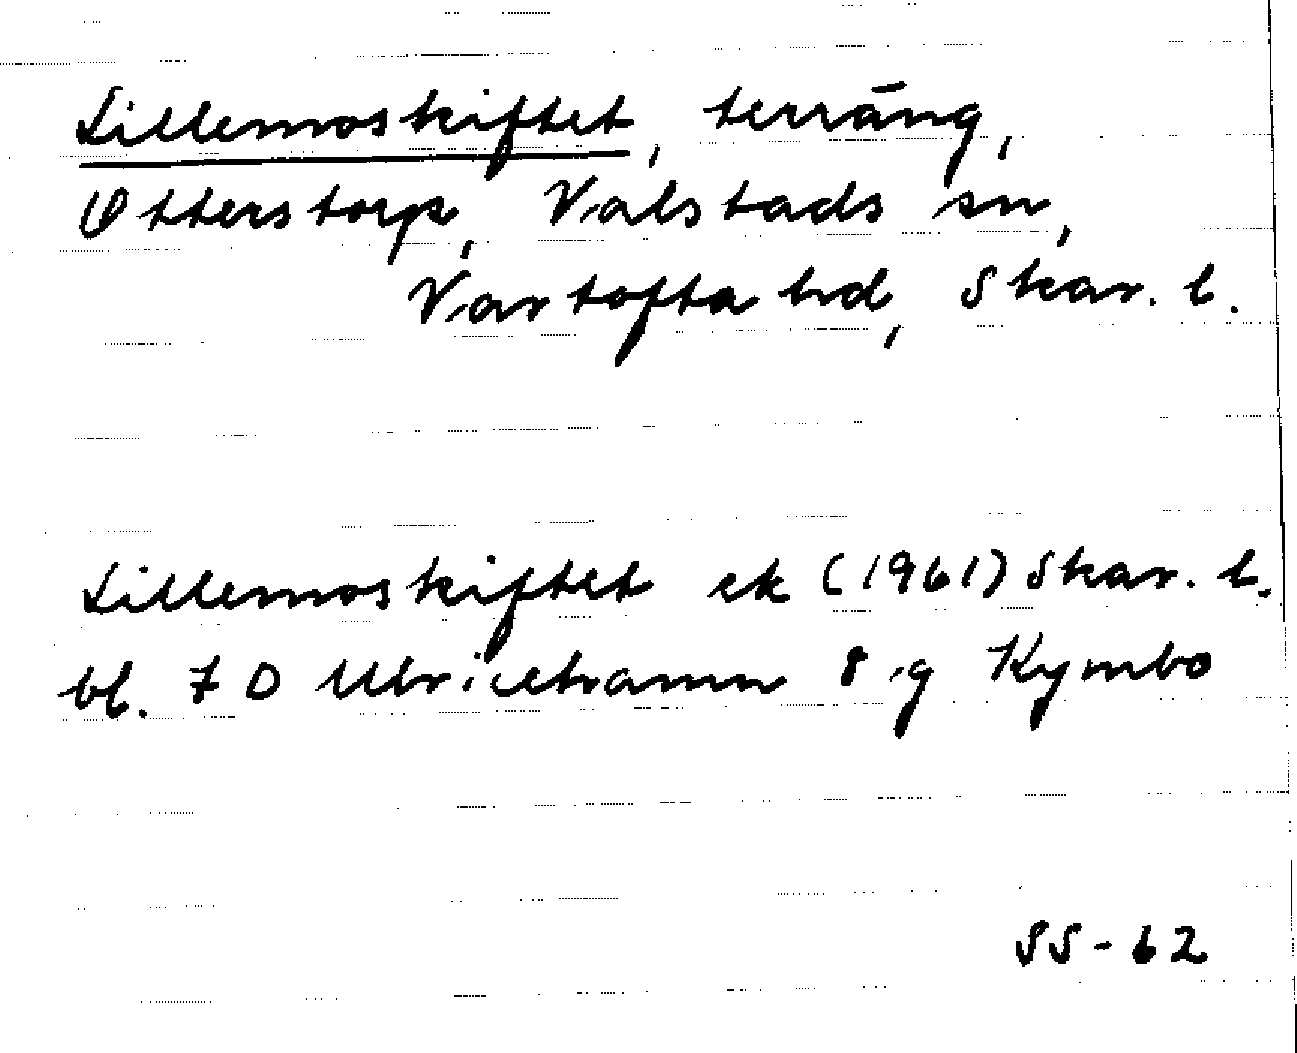 Lillemoskiftet, terräng,
Otterstorp, Valstads sn,
Vartofta hd, Skar. l.
Lillemoskiftet ek (1961) Skar. l.
bl. 7 D Ulricehamn 8 g Kymbo
SS-62